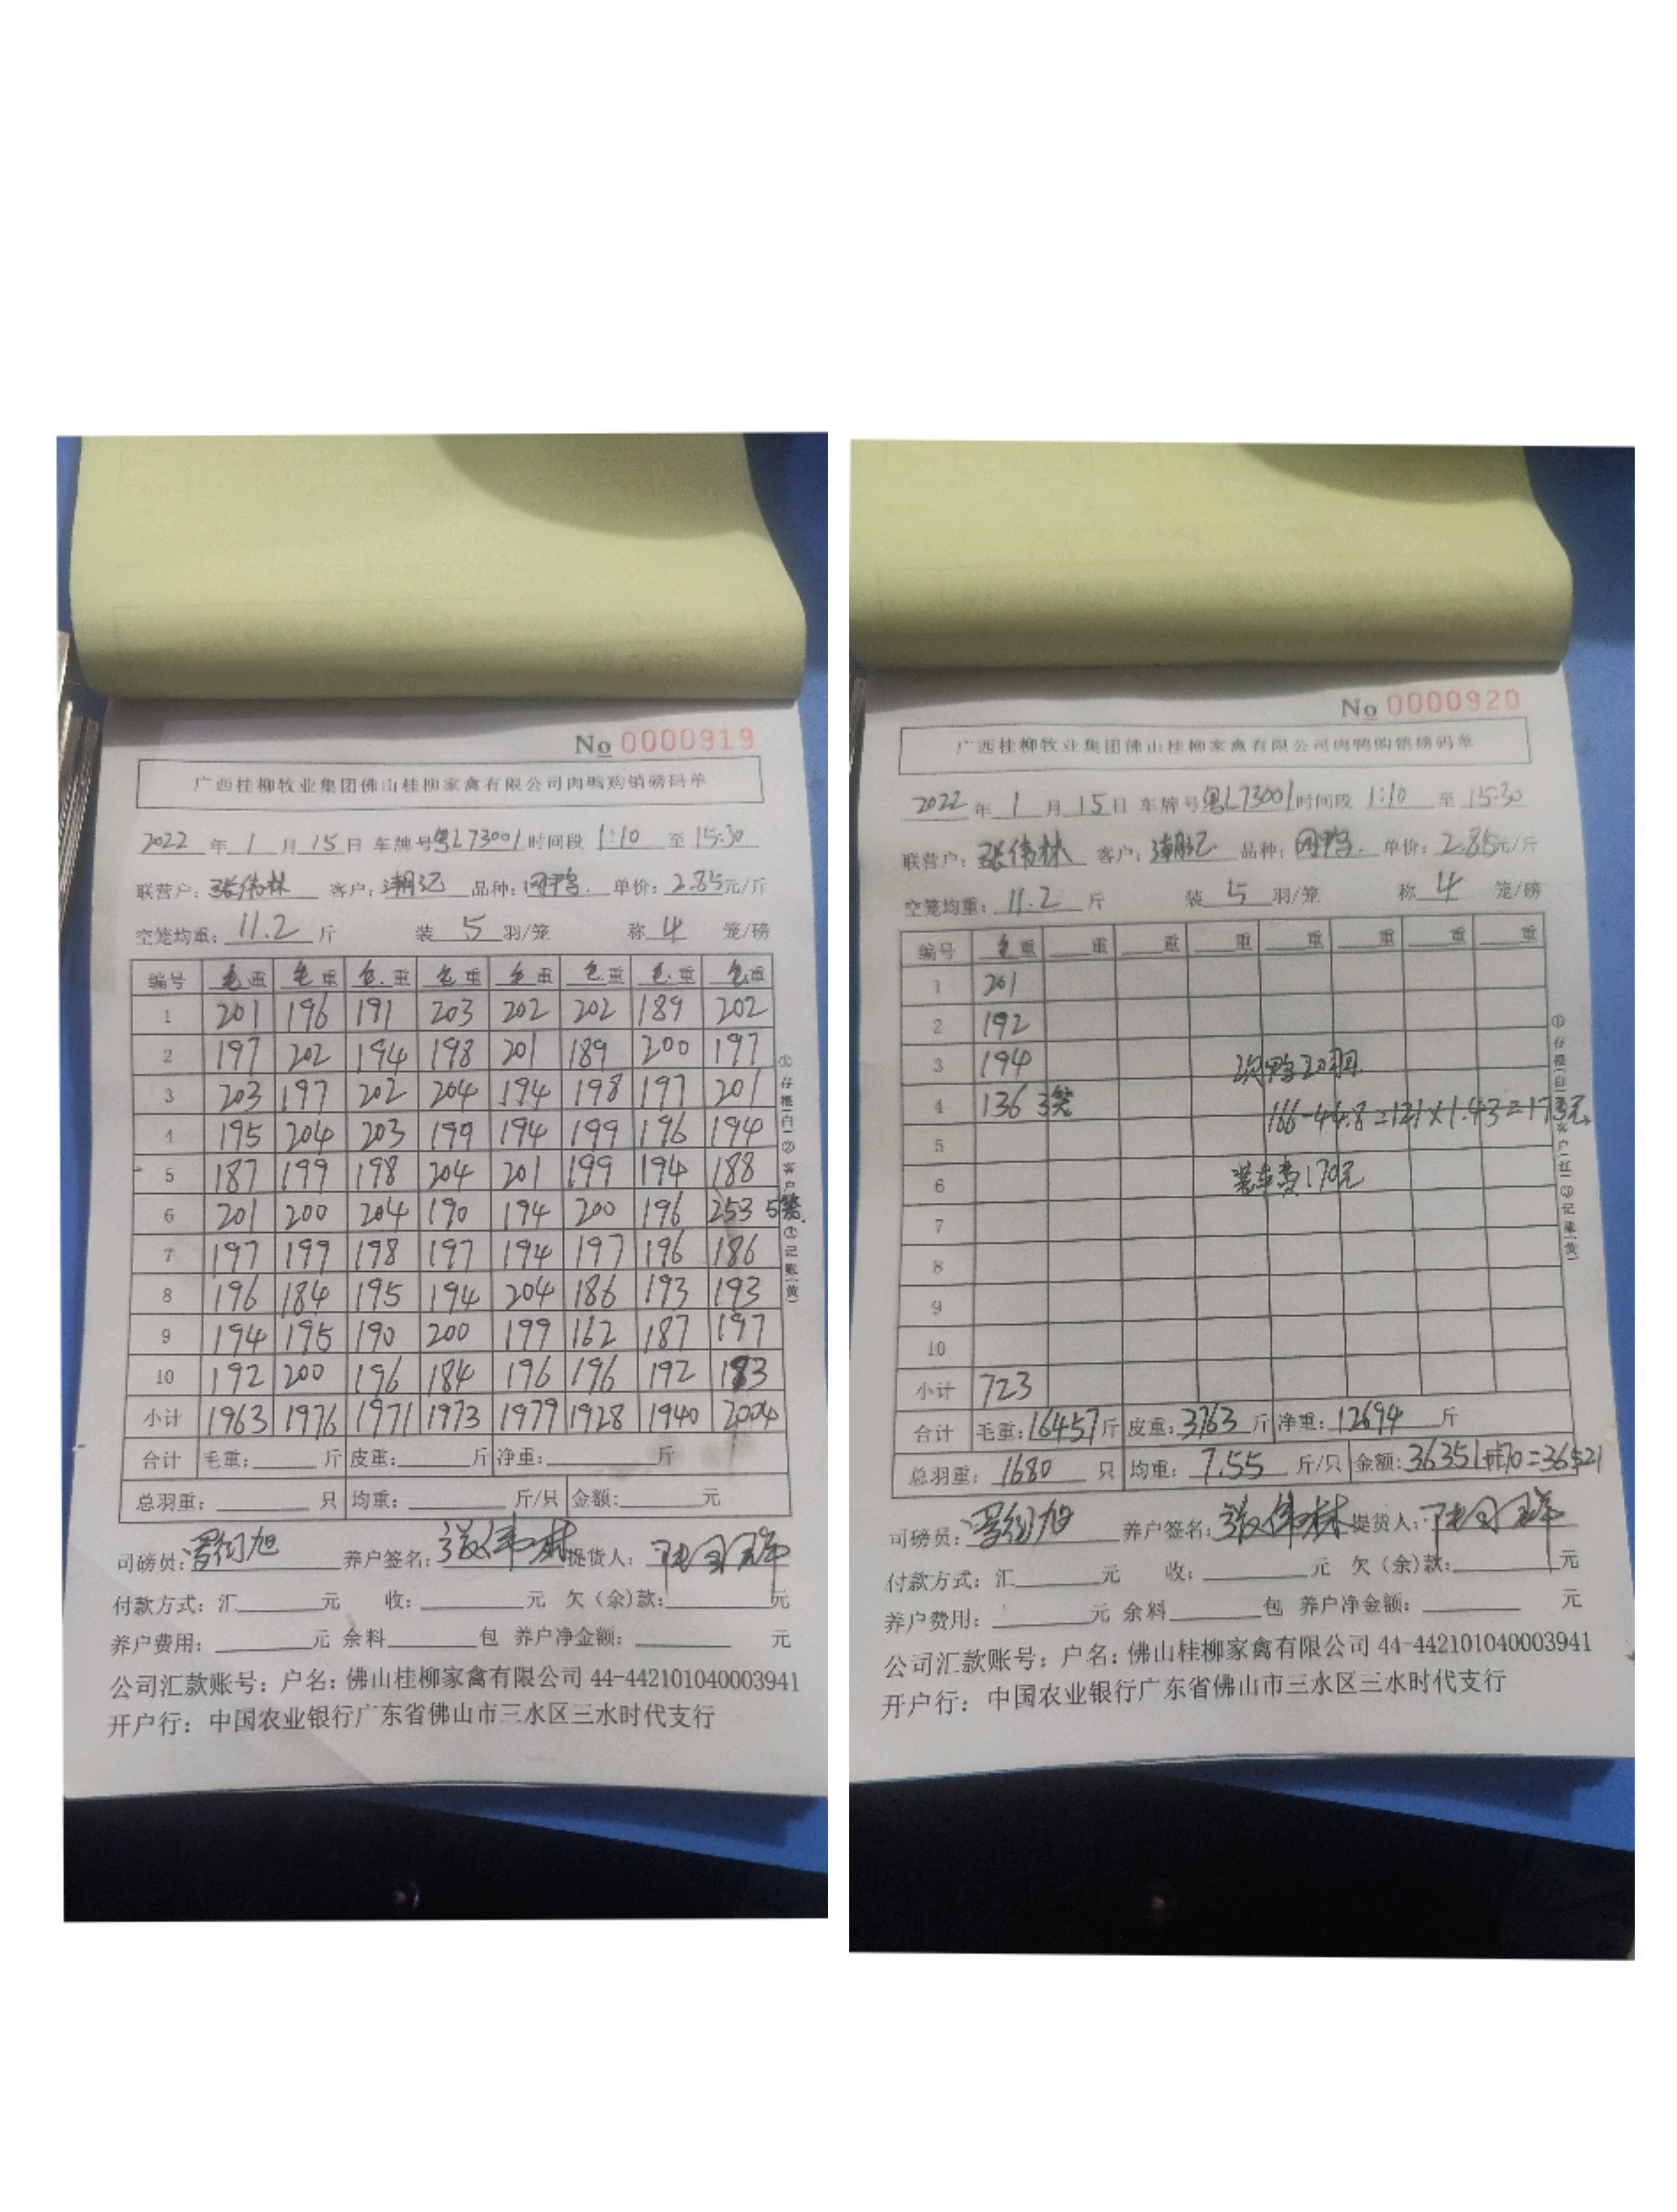 No 0000919
广西桂柳牧业集团佛山桂柳家禽有限公司肉鸭购销磅码单
2022 年 1 月 15 日 车牌号 粤L73001 时间段 1:10 至 15:30
联营户: 张伟林 客户: 潮记 品种: 肉鸭 单价: 2.85 元/斤
空笼均重: 11.2 斤 装 5 羽/笼 称 4 笼/磅
编号 毛重 毛重 毛重 毛重 毛重 毛重 毛重 毛重
1 201 196 191 203 202 202 189 202
2 197 202 194 198 201 189 200 197
3 203 197 202 204 194 198 197 201
4 195 204 203 199 194 199 196 194
5 187 199 198 204 201 199 194 188
6 201 200 204 190 194 200 196 253 5笼
7 197 199 198 197 194 197 196 186
8 196 184 195 194 204 186 193 193
9 194 195 190 200 199 162 187 197
10 192 200 196 184 196 196 192 193
小计 1963 1976 1971 1973 1979 1928 1940 2004
合计 毛重: 斤 皮重: 斤 净重: 斤
总羽重: 只 均重: 斤/只 金额: 元
司磅员: 养户签名: 张伟林 提货人:
付款方式: 汇 元 收: 元 欠(余)款: 元
养户费用: 元 余料 包 养户净金额: 元
公司汇款账号: 户名: 佛山桂柳家禽有限公司 44-442101040003941
开户行: 中国农业银行广东省佛山市三水区三水时代支行
①存根(白) ②客户(红) ③记账(黄)
No 0000920
广西桂柳牧业集团佛山桂柳家禽有限公司肉鸭购销磅码单
2022 年 1 月 15 日 车牌号 粤L73001 时间段 1:10 至 15:30
联营户: 张伟林 客户: 潮记 品种: 肉鸭 单价: 2.85 元/斤
空笼均重: 11.2 斤 装 5 羽/笼 称 4 笼/磅
编号 毛重 重 重 重 重 重 重 重
1 201
2 192
3 194 次鸭20羽
4 136 3笼 166-44.8=121×1.43=173元
5
6 装车费170元
7
8
9
10
小计 723
合计 毛重: 16457 斤 皮重: 3763 斤 净重: 12694 斤
总羽重: 1680 只 均重: 7.55 斤/只 金额: 36351+170=36521
司磅员: 养户签名: 张伟林 提货人:
付款方式: 汇 元 收: 元 欠(余)款: 元
养户费用: 元 余料 包 养户净金额: 元
公司汇款账号: 户名: 佛山桂柳家禽有限公司 44-442101040003941
开户行: 中国农业银行广东省佛山市三水区三水时代支行
①存根(白) ②客户(红) ③记账(黄)